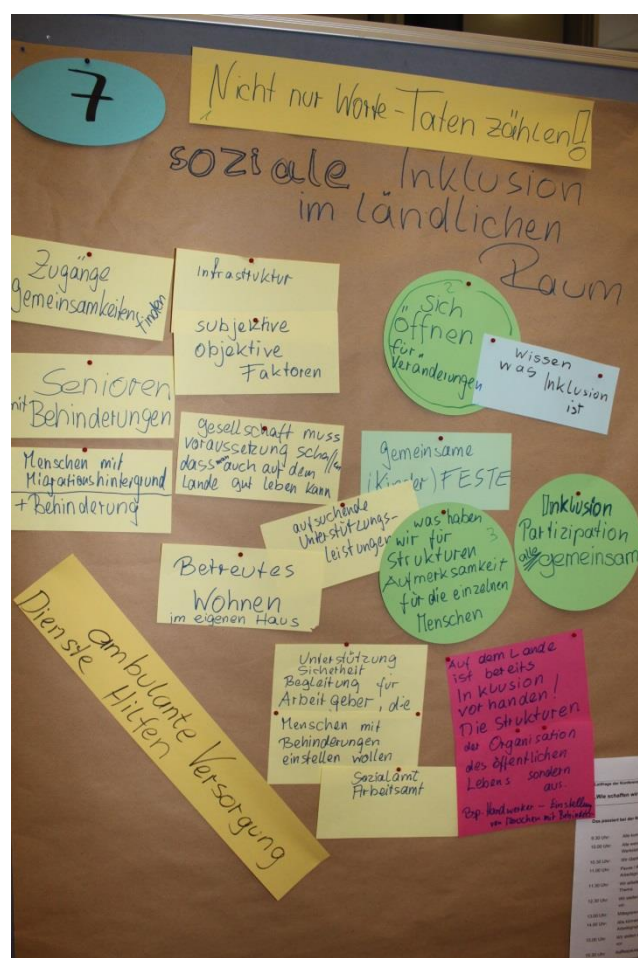 7
Nicht nur Worte - Taten zählen!
soziale Inklusion
im ländlichen
Raum
Zugänge
gemeinsamkeiten finden
Infrastruktur
subjektive
objektive
Faktoren
2
Sich
Öffnen
für
Veränderungen
Wissen
was Inklusion
ist
Senioren
mit Behinderungen
Menschen mit
Migrationshintergrund
+ Behinderung
gesellschaft muss
voraussetzung schaffen
dass man auch auf dem
Lande gut leben kann
gemeinsame
(Kinder) FESTE
aufsuchende
Unterstützungs-
leistungen
was haben
wir für 3
Strukturen
Aufmerksamkeit
für die einzelnen
Menschen
Inklusion
Partizipation
alle gemeinsam
Betreutes
Wohnen
im eigenen Haus
ambulante Versorgung
Dienste Hilfen
Unterstützung
Sicherheit
Begleitung für
Arbeitgeber, die
Menschen mit
Behinderungen
einstellen wollen
Sozialamt
Arbeitsamt
Auf dem Lande
ist bereits
Inkluusion
vorhanden!
Die Strukturen
der Organisation
des öffentlichen
Lebens sondern
aus.
Bsp. Handwerker - Einstellung
von Menschen mit Behind
Wie schaffen wi
Das passiert bei der
9.30 Uhr
10.00 Uhr
10.30 Uhr
11.00 Uhr
11.30 Uhr
12.30 Uhr
13.00 Uhr
14.00 Uhr
15.00 Uhr